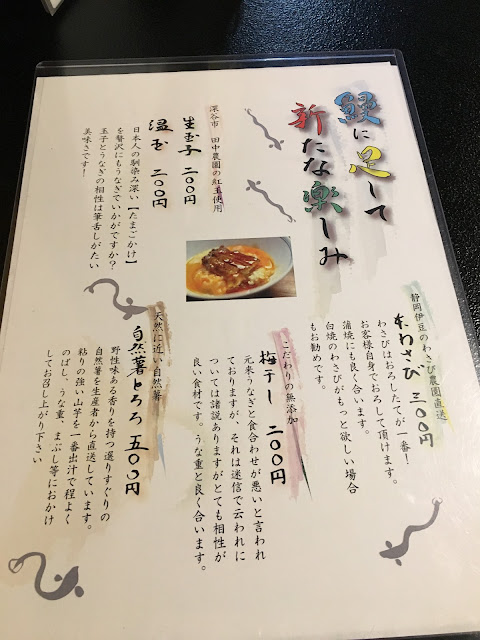 鰻に足して
新たな楽しみ
深谷市 田中農園の紅玉使用
生玉子 二〇〇円
温玉 二〇〇円
日本人の馴染み深い【たまごかけ】
を贅沢にもうなぎでいかがですか?
玉子とうなぎの相性は筆舌しがたい
美味さです!
静岡伊豆のわさび農園直送
本わさび 三〇〇円
わさびはおろしたてが一番!
お客様自身でおろして頂けます。
蒲焼にも良く合います。
白焼のわさびがもっと欲しい場合
もお勧めです。
こだわりの無添加
梅干し 二〇〇円
元来うなぎと食合わせが悪いと言われ
ておりますが、それは迷信で云われに
ついては諸説ありますがとても相性が
良い食材です。うな重と良く合います。
天然に近い自然薯
自然薯とろろ 五〇〇円
野性味ある香りを持つ選りすぐりの
自然薯を生産者から直送しています。
粘りの強い山芋を一番出汁で程よく
のばし、うな重、まぶし等におかけ
してお召し上がり下さい